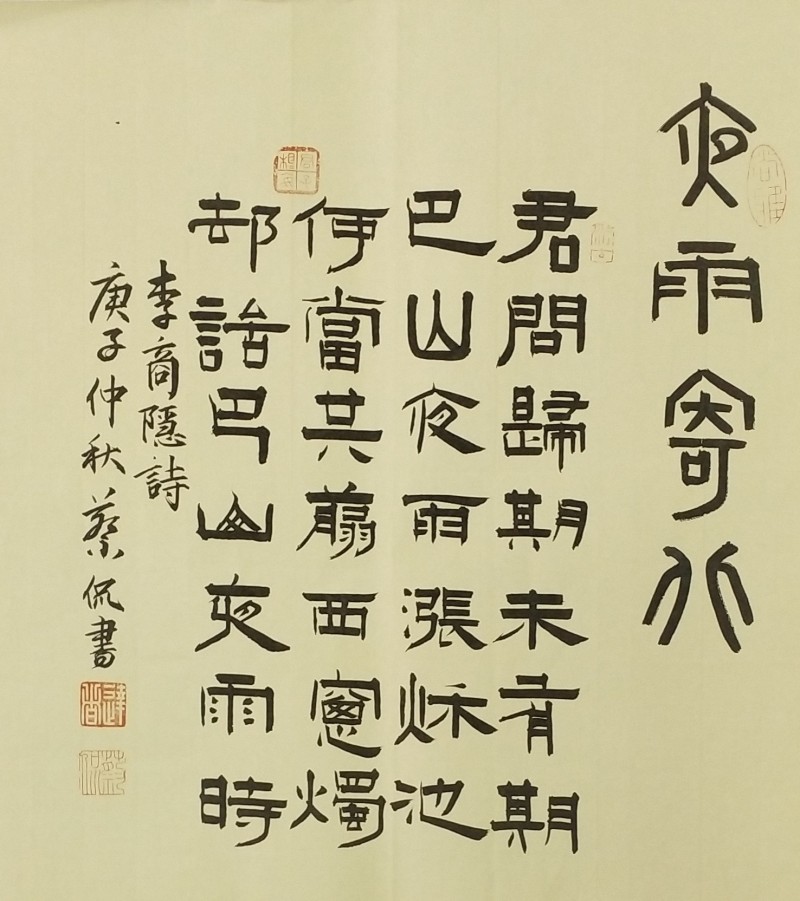 夜雨寄北
君問歸期未有期
巴山夜雨漲秋池
何當共翦西窗燭
却話巴山夜雨時
李商隱詩
庚子仲秋蔡侃書